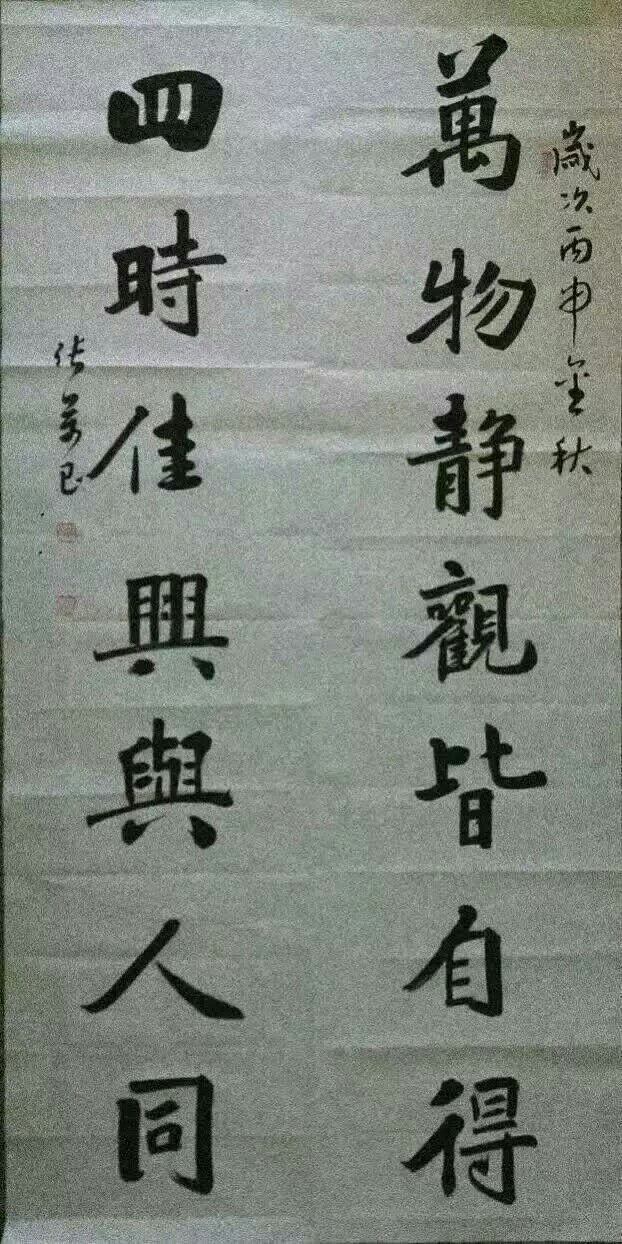 歲次丙申金秋
萬物静觀皆自得
四時佳興與人同